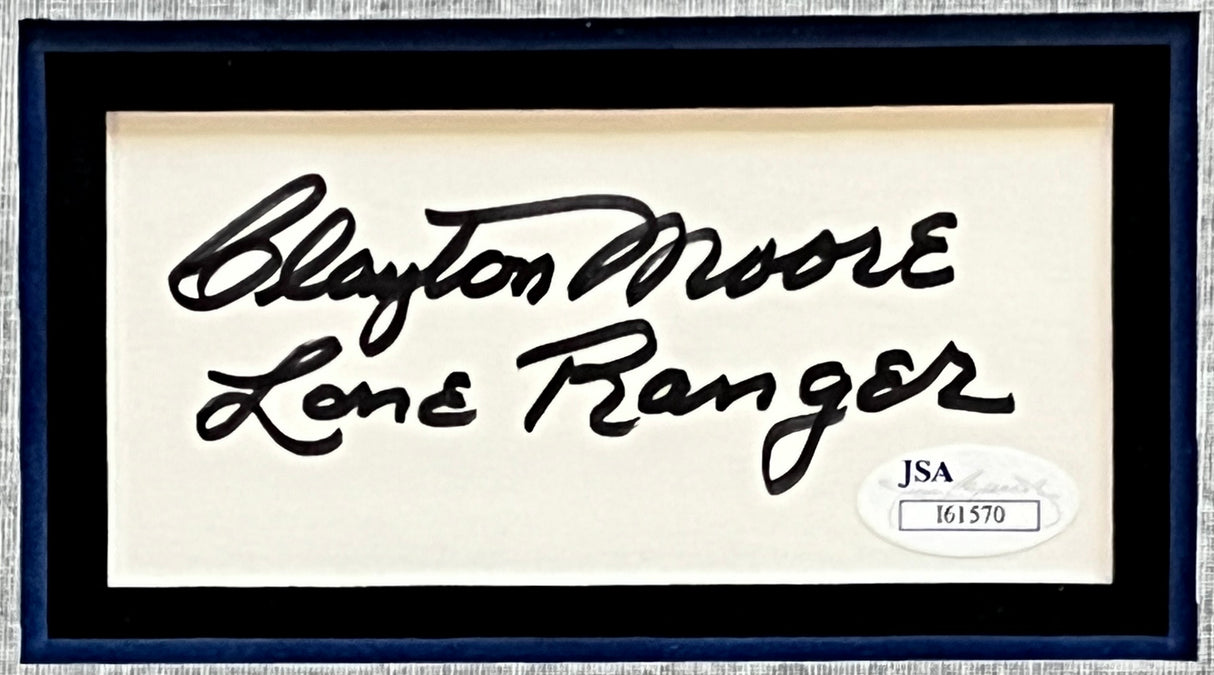 Clayton Moore
Lone Ranger
JSA
I61570